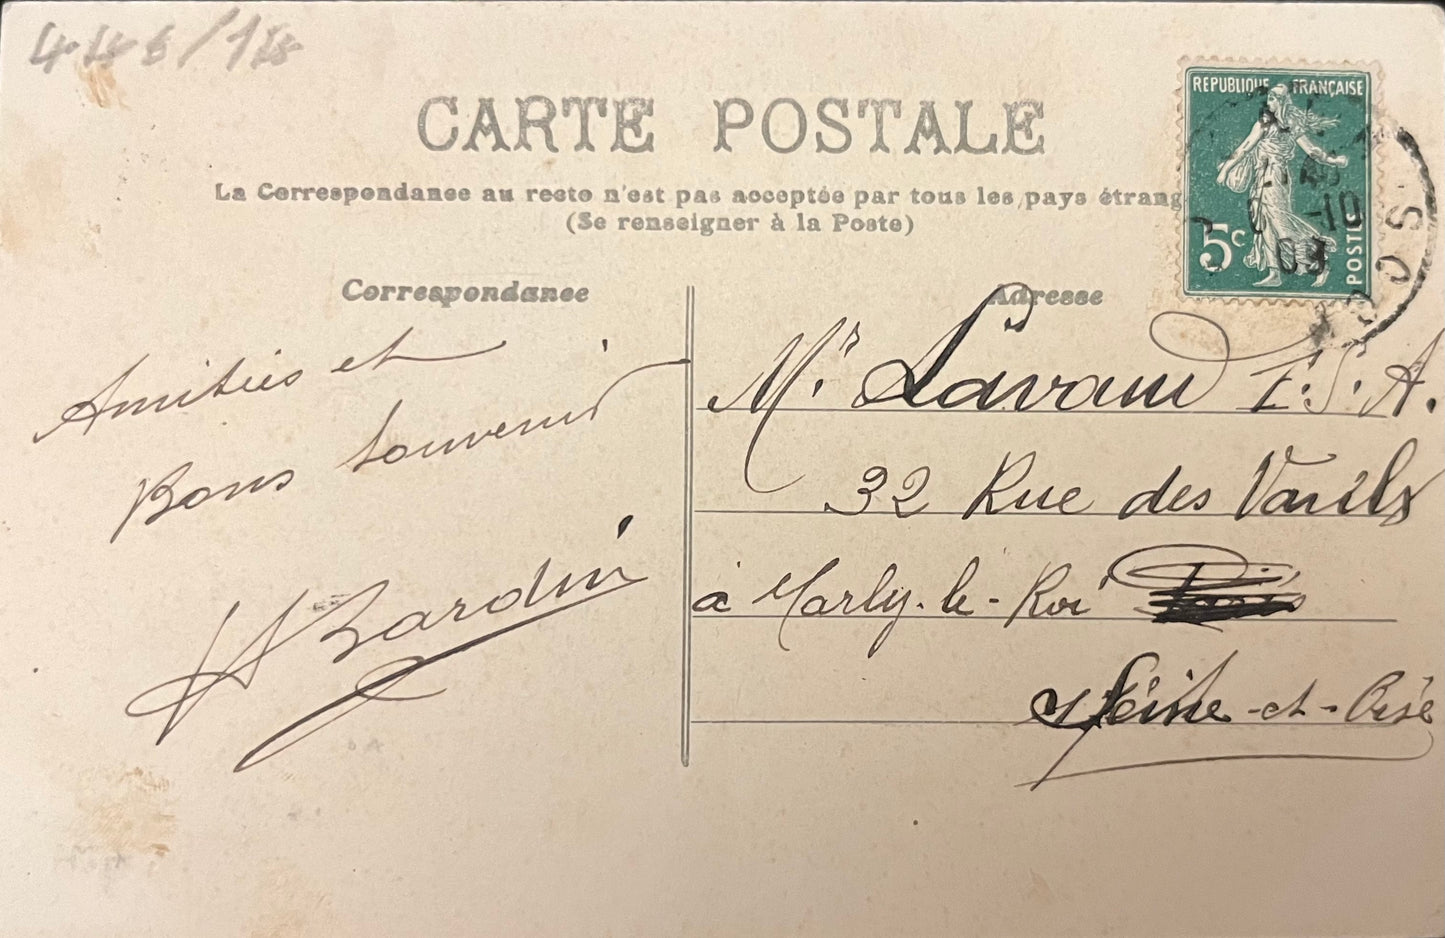 CARTE POSTALE
La Correspondance au recto n'est pas acceptée par tous les pays étrang
(Se renseigner à la Poste)
RÉPUBLIQUE FRANÇAISE
5c
POSTE
-10
09
Correspondance
Amitiés et
Bons souvenir
Bardin
Adresse
Mr.
32 Rue des
à Marly-le-Roi Paris
Seine-et-Oise